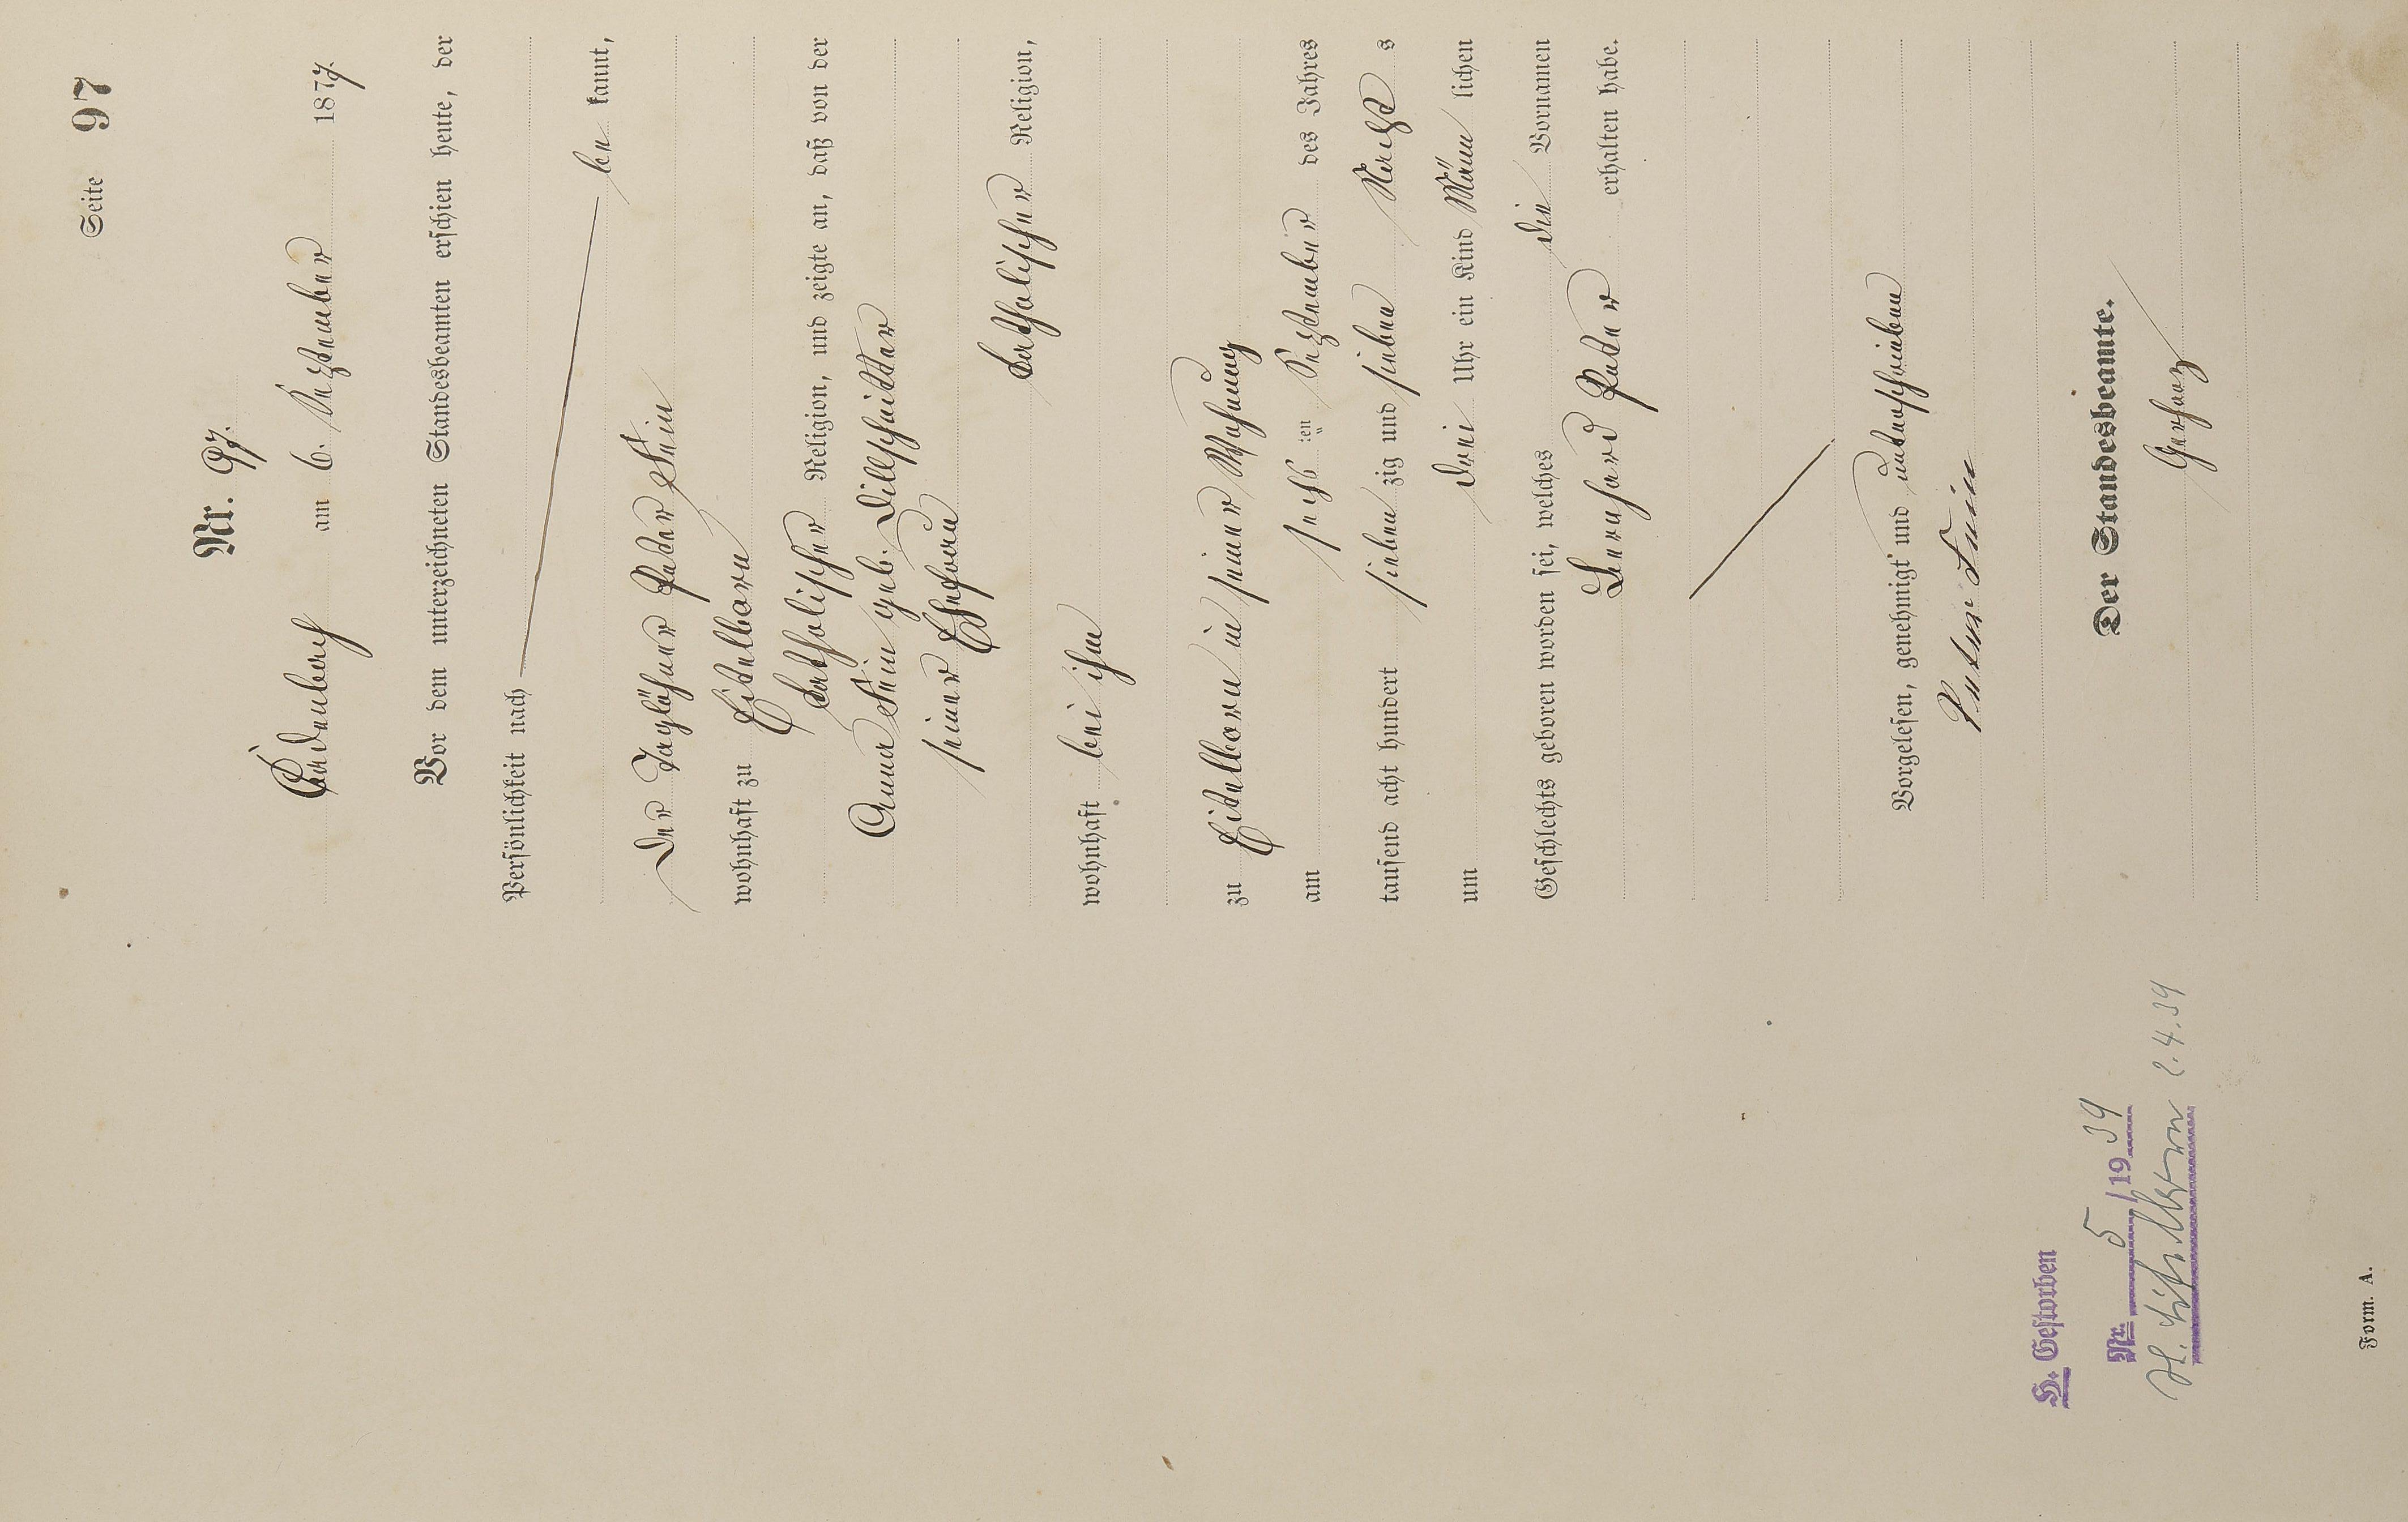 Seite 97
Nr. 97.
am 6. September 1877.
Vor dem unterzeichneten Standesbeamten erschien heute, der
Persönlichkeit nach
be kannt,
der Taglöhner Peter Stein
wohnhaft zu Eitelborn
katholischer Religion, und zeigte an, daß von der
Anna Stein geb. Dillschnitter
seiner Ehefrau
katholischer Religion,
wohnhaft bei ihm
zu Eitelborn in seiner Wohnung
am sechsten September des Jahres
tausend acht hundert sieben zig und sieben Nachts
um drei Uhr ein Kind männ lichen
Geschlechts geboren worden sei, welches die Vornamen
Bernhard Peter erhalten habe.
Vorgelesen, genehmigt und unterschrieben
Peter Stein
Der Standesbeamte.
Gerharz
H. Gestorben
Nr. 5 /19 39
St. Eitelborn 2.4.39
Form. A.